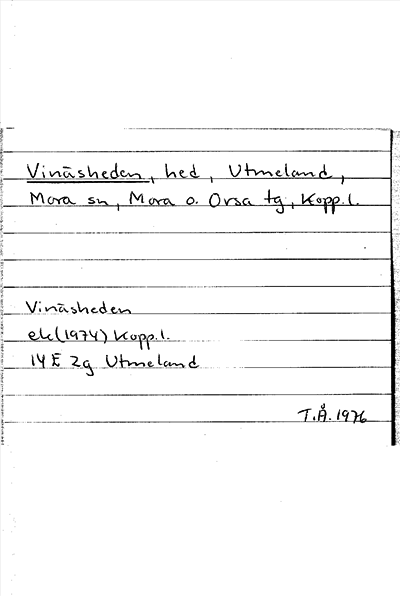 Vinäsheden, hed, Utmeland,
Mora sn, Mora o. Orsa tg, Kopp.l.
Vinäsheden
ek(1974) Kopp.l.
14 E 2g Utmeland
T.Å. 1976